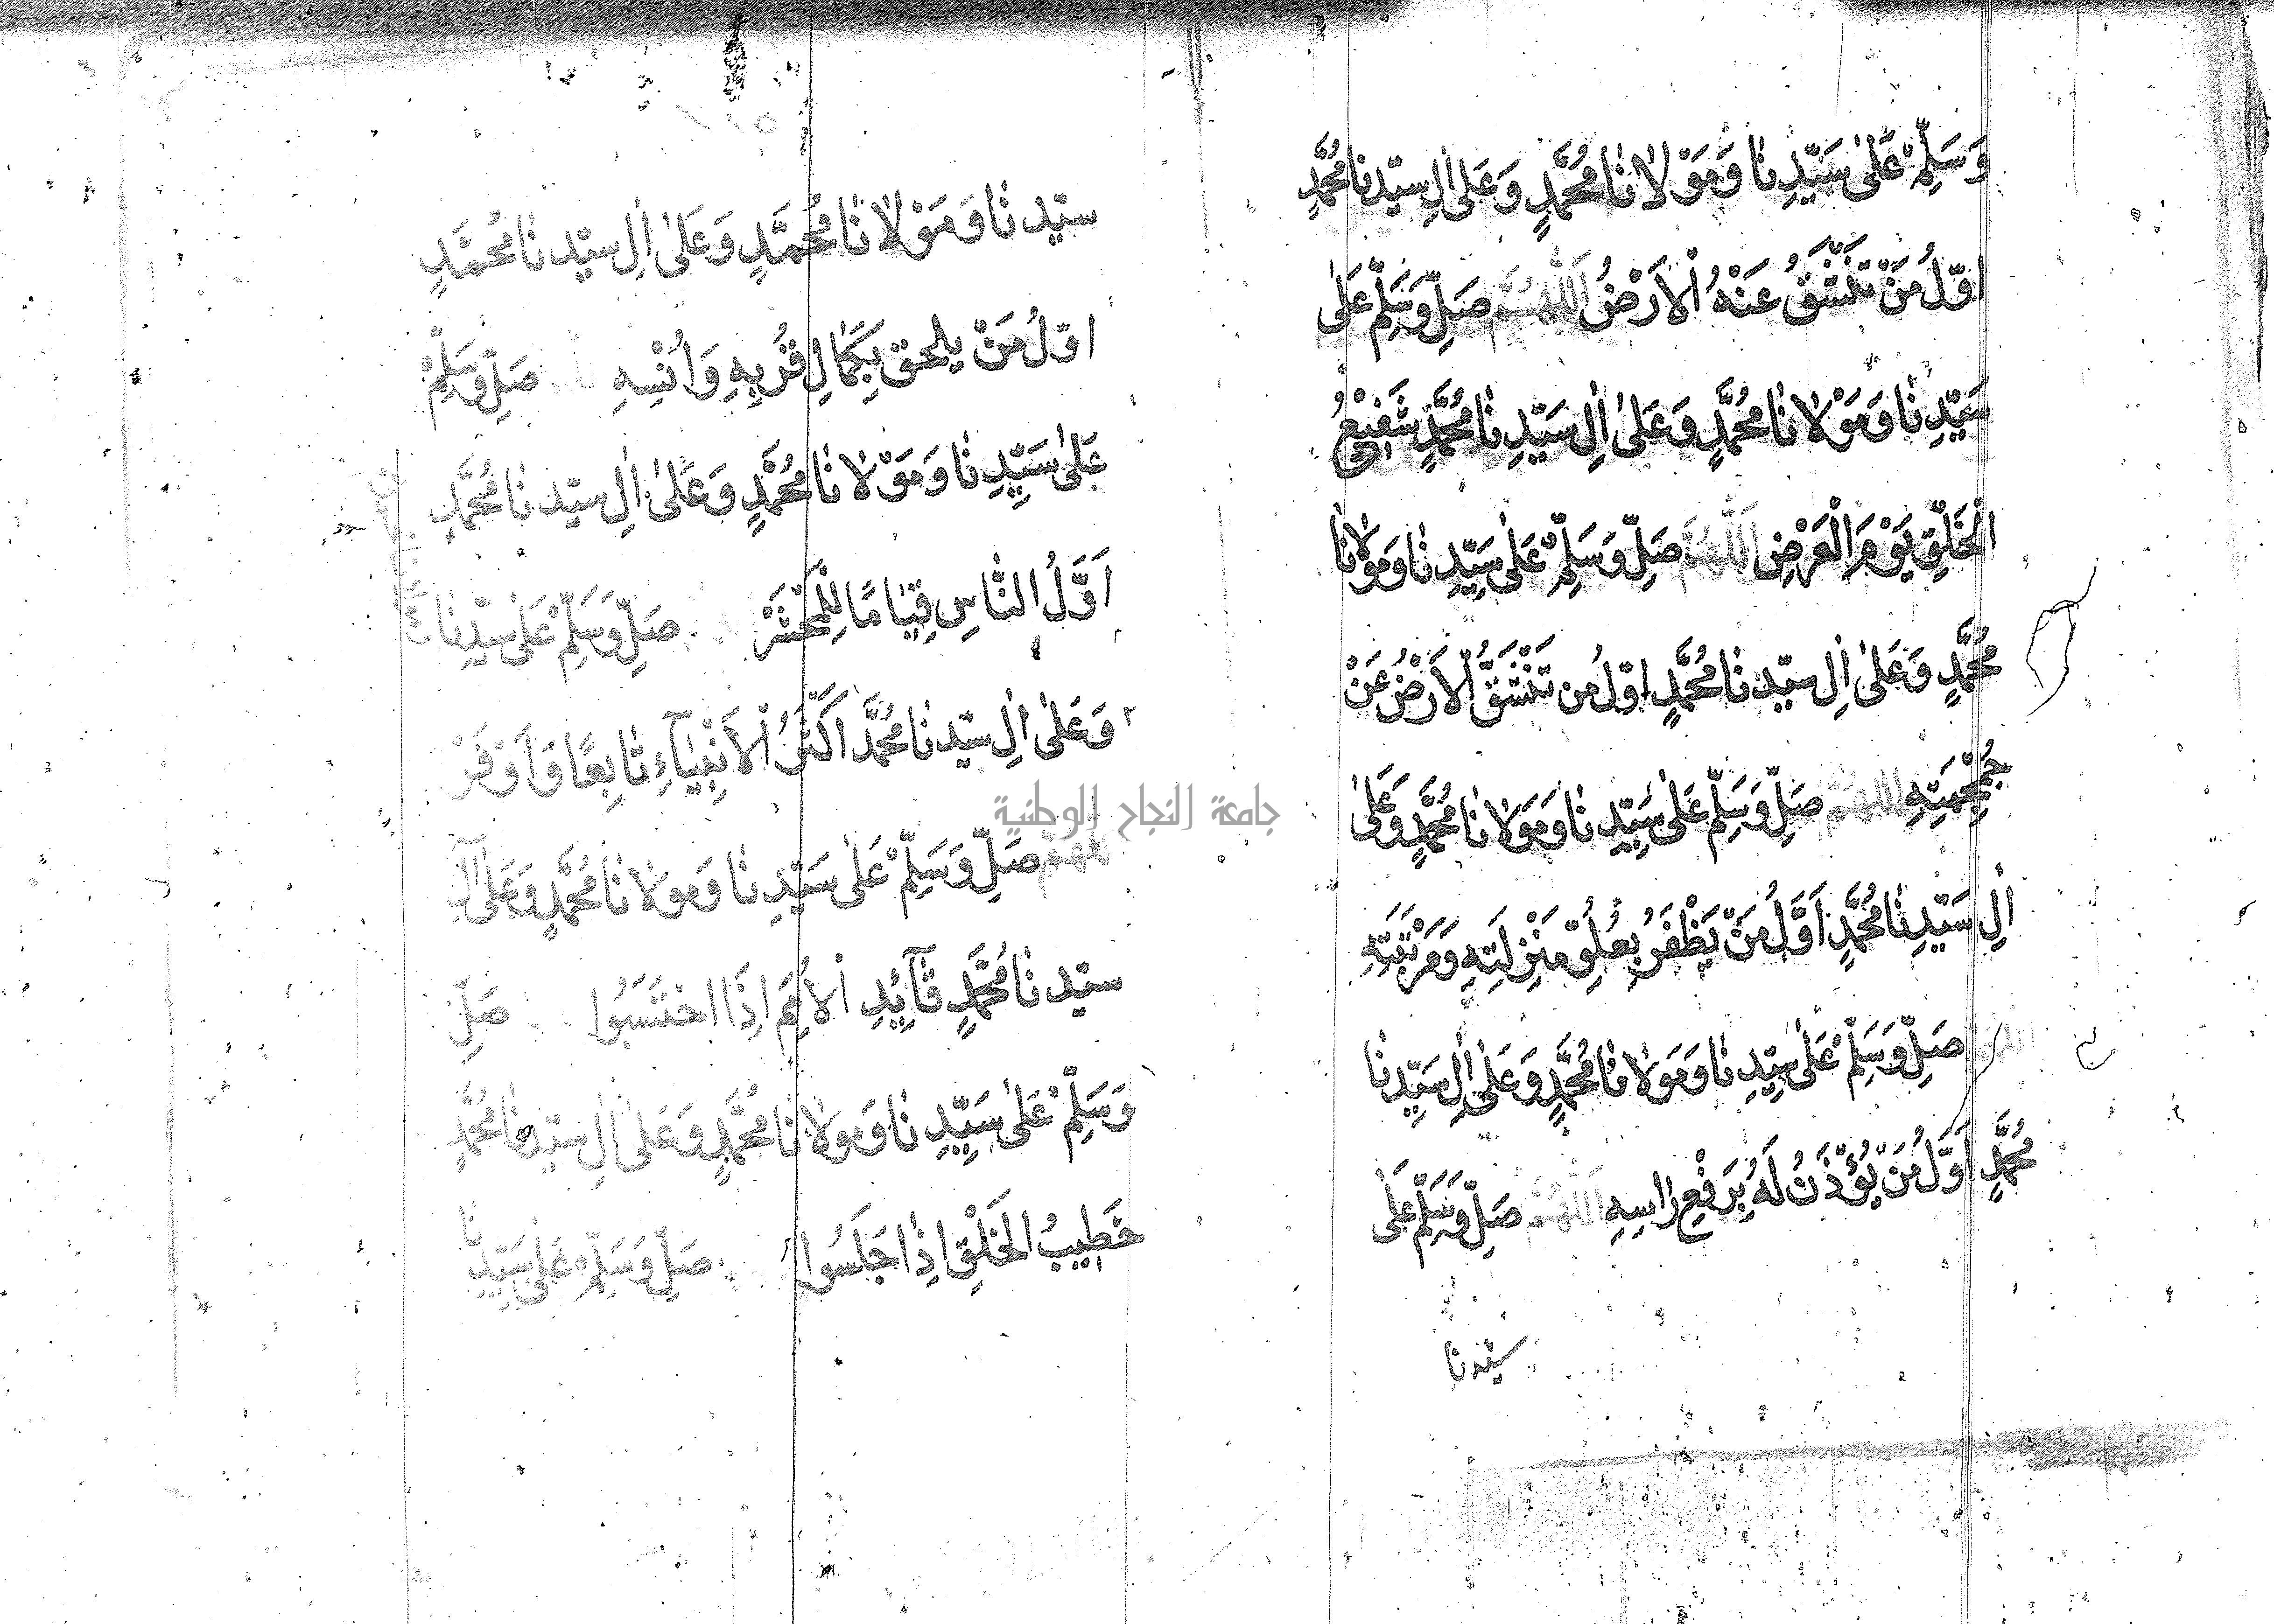 وَسَلِّمْ عَلىٰ سَيِّدِنَا وَمَوْلَانَا مُحَمَّدٍ وَعَلىٰ اٰلِ سيّدنا مُحَمَّدٍ
اوّلُ مَنْ تَنْشَقُّ عَنْهُ الْاَرْضُ اَللّٰهُمَّ صَلِّ وَسَلِّمْ عَلىٰ
سَيّدِنَا وَمَوْلَانَا مُحَمَّدٍ وَعَلىٰ اٰلِ سَيّدِنَا مُحَمَّدٍ شَفِيْعُ
الْخَلْقِ يَوْمَ الْعَرْضِ اَللّٰهُمَّ صَلِّ وَسَلِّمْ عَلىٰ سَيِّدِنَا وَمَوْلَانَا
مُحَمَّدٍ وَعَلىٰ اٰلِ سيّدنا مُحَمَّدٍ اوّلُ من تَنْشَقُّ الْاَرْضُ عَنْ
جُمْجُمَتِهِ اَللّٰهُمَّ صَلِّ وَسَلِّمْ عَلىٰ سَيّدِنَا وَمَوْلَانَا مُحَمَّدٍ وَعَلىٰ
اٰلِ سَيّدِنَا مُحَمَّدٍ اَوَّلُ مَنْ يَظْفَرُ بِعُلُوِّ مَنْزِلَتِهِ وَمَرْتَبَتِهِ
اللهم صَلِّ وَسَلِّمْ عَلىٰ سَيّدِنَا وَمَوْلَانَا مُحَمَّدٍ وَعَلىٰ اٰلِ سَيّدِنَا
مُحَمَّدٍ اَوّلُ مَنْ يُؤْذَنُ لَهُ بِرَفْعِ رَاسِهِ اَللّٰهُمَّ صَلِّ وَسَلِّمْ عَلىٰ
سيّدنا
سيّدنا وَمَوْلَانَا مُحَمَّدٍ وَعَلىٰ اٰلِ سيّدنا مُحَمَّدٍ
اوّلُ مَنْ يلحق بِكَمَالِ قُرْبِهِ وَاُنْسِهِ صَلِّ وَسَلِّمْ
عَلىٰ سَيِّدِنَا وَمَوْلَانَا مُحَمَّدٍ وَعَلىٰ اٰلِ سيّدنا مُحَمَّدٍ
اَوَّلُ النَّاسِ قِيَامًا لِلْمَحْشَرْ صَلِّ وَسَلِّمْ عَلىٰ سيّدِنَا
وَعَلىٰ اٰلِ سيّدنا مُحَمَّد اَكْثَرُ الْاَنْبِيَآءِ تَابِعًا وَاَوْفَرْ
اللهمّ صَلِّ وَسَلِّمْ عَلىٰ سَيّدِنَا وَمولانَا مُحَمَّدٍ وَعَلىٰ آلِ
سيّدنا مُحَمَّدٍ قَآئِدِ الْاُمَمِ اِذَا احْتَسَبُوا صَلِّ
وَسَلِّمْ عَلىٰ سَيِّدِنَا وَمَولَانَا مُحَمَّدٍ وَعَلىٰ اٰلِ سيّدنا مُحَمَّدٍ
خَطِيبُ الخَلْقِ اِذَا جَلَسُوا صَلِّ وَسَلِّمْ عَلىٰ سَيّدِنَا
جامعة النجاح الوطنية